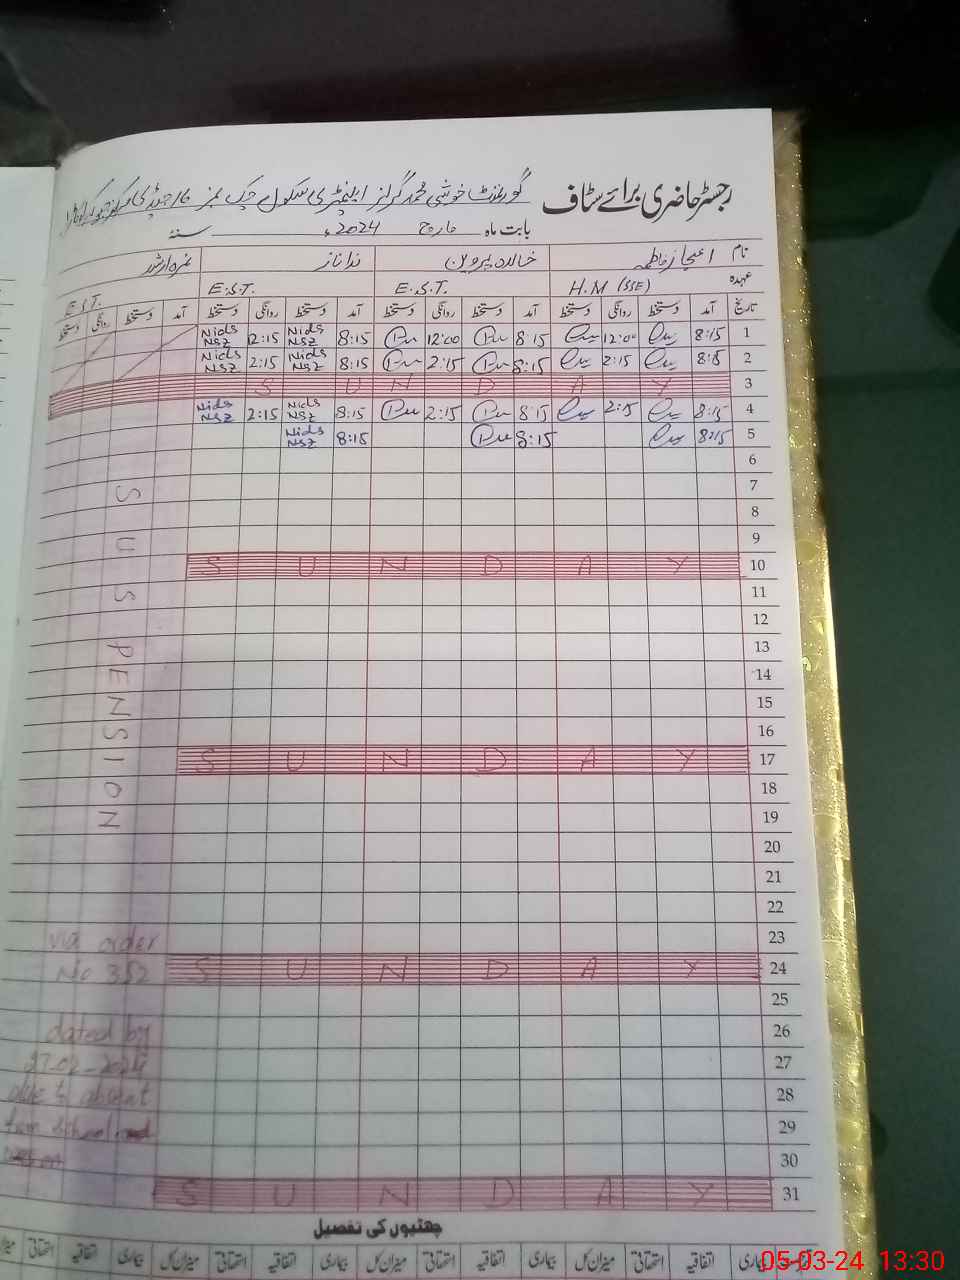 رجسٹر حاضری برائے سٹاف
گورنمنٹ خوشی محمد گرلز ایلیمنٹری سکول چک نمبر
بابت ماہ مارچ 2024ء سنہ
نام اعجاز فاطمہ خالدہ پروین ندا ناز نمرہ ارشد
عہدہ H.M (SSE) E.S.T. E.S.T. E.S.T.
تاریخ آمد دستخط روانگی دستخط آمد دستخط روانگی دستخط آمد دستخط روانگی دستخط آمد دستخط روانگی دستخط
1 8:15 12:00 8:15 12:00 8:15 Nids NSZ 12:15 Nids NSZ
2 8:15 2:15 8:15 2:15 8:15 Nids NSZ 2:15 Nids NSZ
3 S U N D A Y
4 8:15 2:15 8:15 2:15 8:15 Nids NSZ 2:15 Nids NSZ
5 8:15 8:15 8:15 Nids NSZ
6
7
8
9
10 S U N D A Y
11
12
13
14
15
16
17 S U N D A Y
18
19
20
21
22
23
24 S U N D A Y
25
26
27
28
29
30
31 S U N D A Y
SUSPENSION
via order
No 352
dated by
27-02-2024
due to absent
from school
چھٹیوں کی تفصیل
بیماری اتفاقیہ استحقاقی میزان کل بیماری اتفاقیہ استحقاقی میزان کل بیماری اتفاقیہ استحقاقی میزان کل بیماری اتفاقیہ استحقاقی میزان
05-03-24 13:30